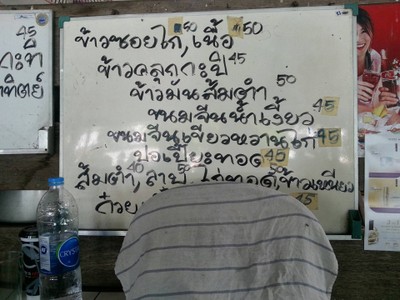 45
กะทิ
ทิตย์
50 50
ข้าวซอยไก่,เนื้อ
ข้าวคลุกกะปิ 45
50
ข้าวมันส้มตำ
ขนมจีนน้ำเงี้ยว 45
ขนมจีนเขียวหวานไก่ 45
ปอเปี๊ยะทอด 45
40 50
ส้มตำ,ลาบ,ไก่ทอด,ข้าวเหนียว
ก๋วย 45
CRYSTAL